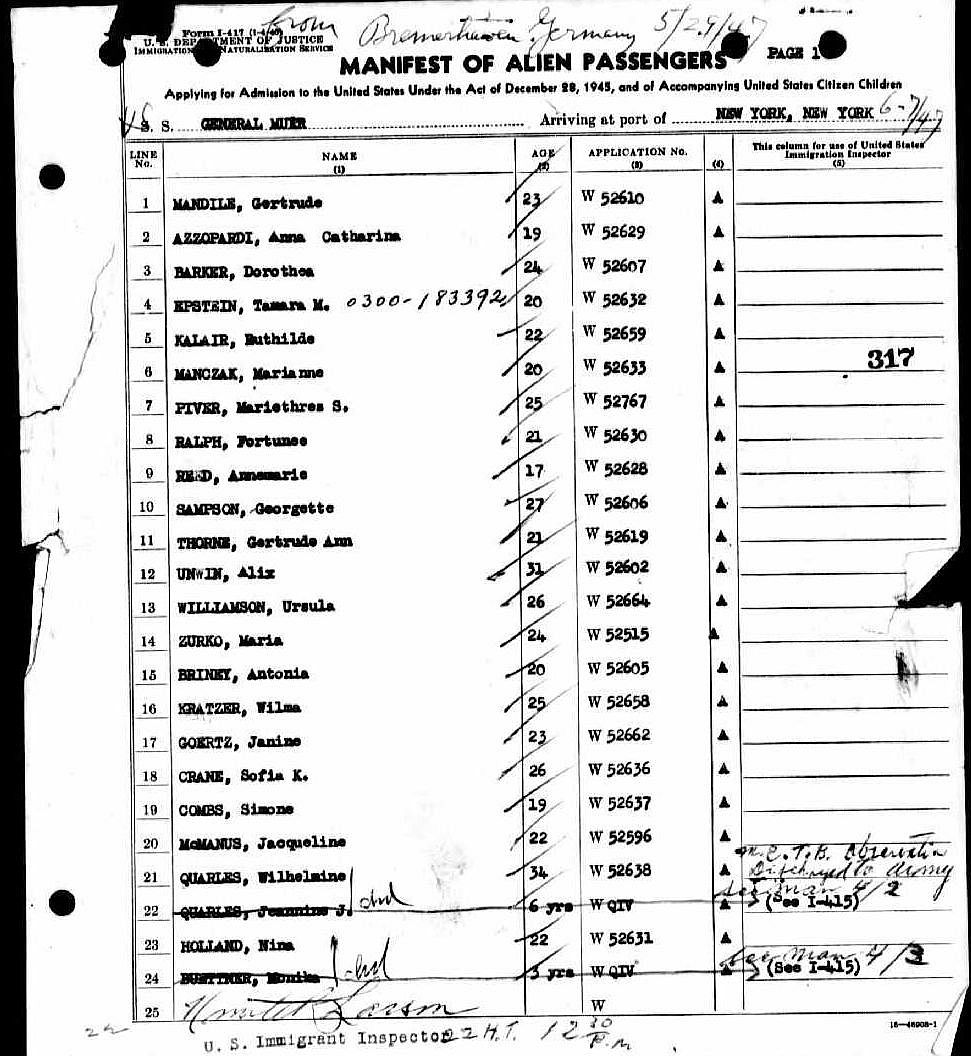 from Bremerhaven Germany 5/29/47
Form I-417
U. S. DEPARTMENT OF JUSTICE
IMMIGRATION AND NATURALIZATION SERVICE
PAGE 1
MANIFEST OF ALIEN PASSENGERS
Applying for Admission to the United States Under the Act of December 28, 1945, and of Accompanying United States Citizen Children
US S. S. GENERAL MUIR Arriving at port of NEW YORK, NEW YORK 6-7/47
LINE No. NAME (1) AGE (2) APPLICATION No. (3) (4) This column for use of United States Immigration Inspector (5)
1 MANDILE, Gertrude 23 W 52610 A
2 AZZOPARDI, Anna Catharina 19 W 52629 A
3 BARKER, Dorothea 24 W 52607 A
4 EPSTEIN, Tamara M. 0300-183392 20 W 52632 A
5 KALAIR, Ruthilde 22 W 52659 A
6 MANCZAK, Marianne 20 W 52633 A
317
7 PIVER, Mariethres S. 25 W 52767 A
8 RALPH, Fortunee 21 W 52630 A
9 REED, Annemarie 17 W 52628 A
10 SAMPSON, Georgette 27 W 52606 A
11 THORNE, Gertrude Ann 21 W 52619 A
12 UNWIN, Alix 31 W 52602 A
13 WILLIAMSON, Ursula 26 W 52664 A
14 ZURKO, Maria 24 W 52515 A
15 BRINEY, Antonia 20 W 52605 A
16 KRATZER, Wilma 25 W 52658 A
17 GOERTZ, Janine 23 W 52662 A
18 CRANE, Sofia K. 26 W 52636 A
19 COMBS, Simone 19 W 52637 A
20 McMANUS, Jacqueline 22 W 52596 A
21 QUARLES, Wilhelmine 34 W 52638 A T.B. Observation
to Army
see man 4/2
22 QUARLES, Jeannine J. chd 6 yrs W QIV A (See I-415)
23 HOLLAND, Nina 22 W 52631 A
see man 4/3
24 BUETTNER, Monika chd 3 yrs W QIV A (See I-415)
25 Larson W
16-46908-1
22 U. S. Immigrant Inspector 22 H.T. 12 30 P.m.